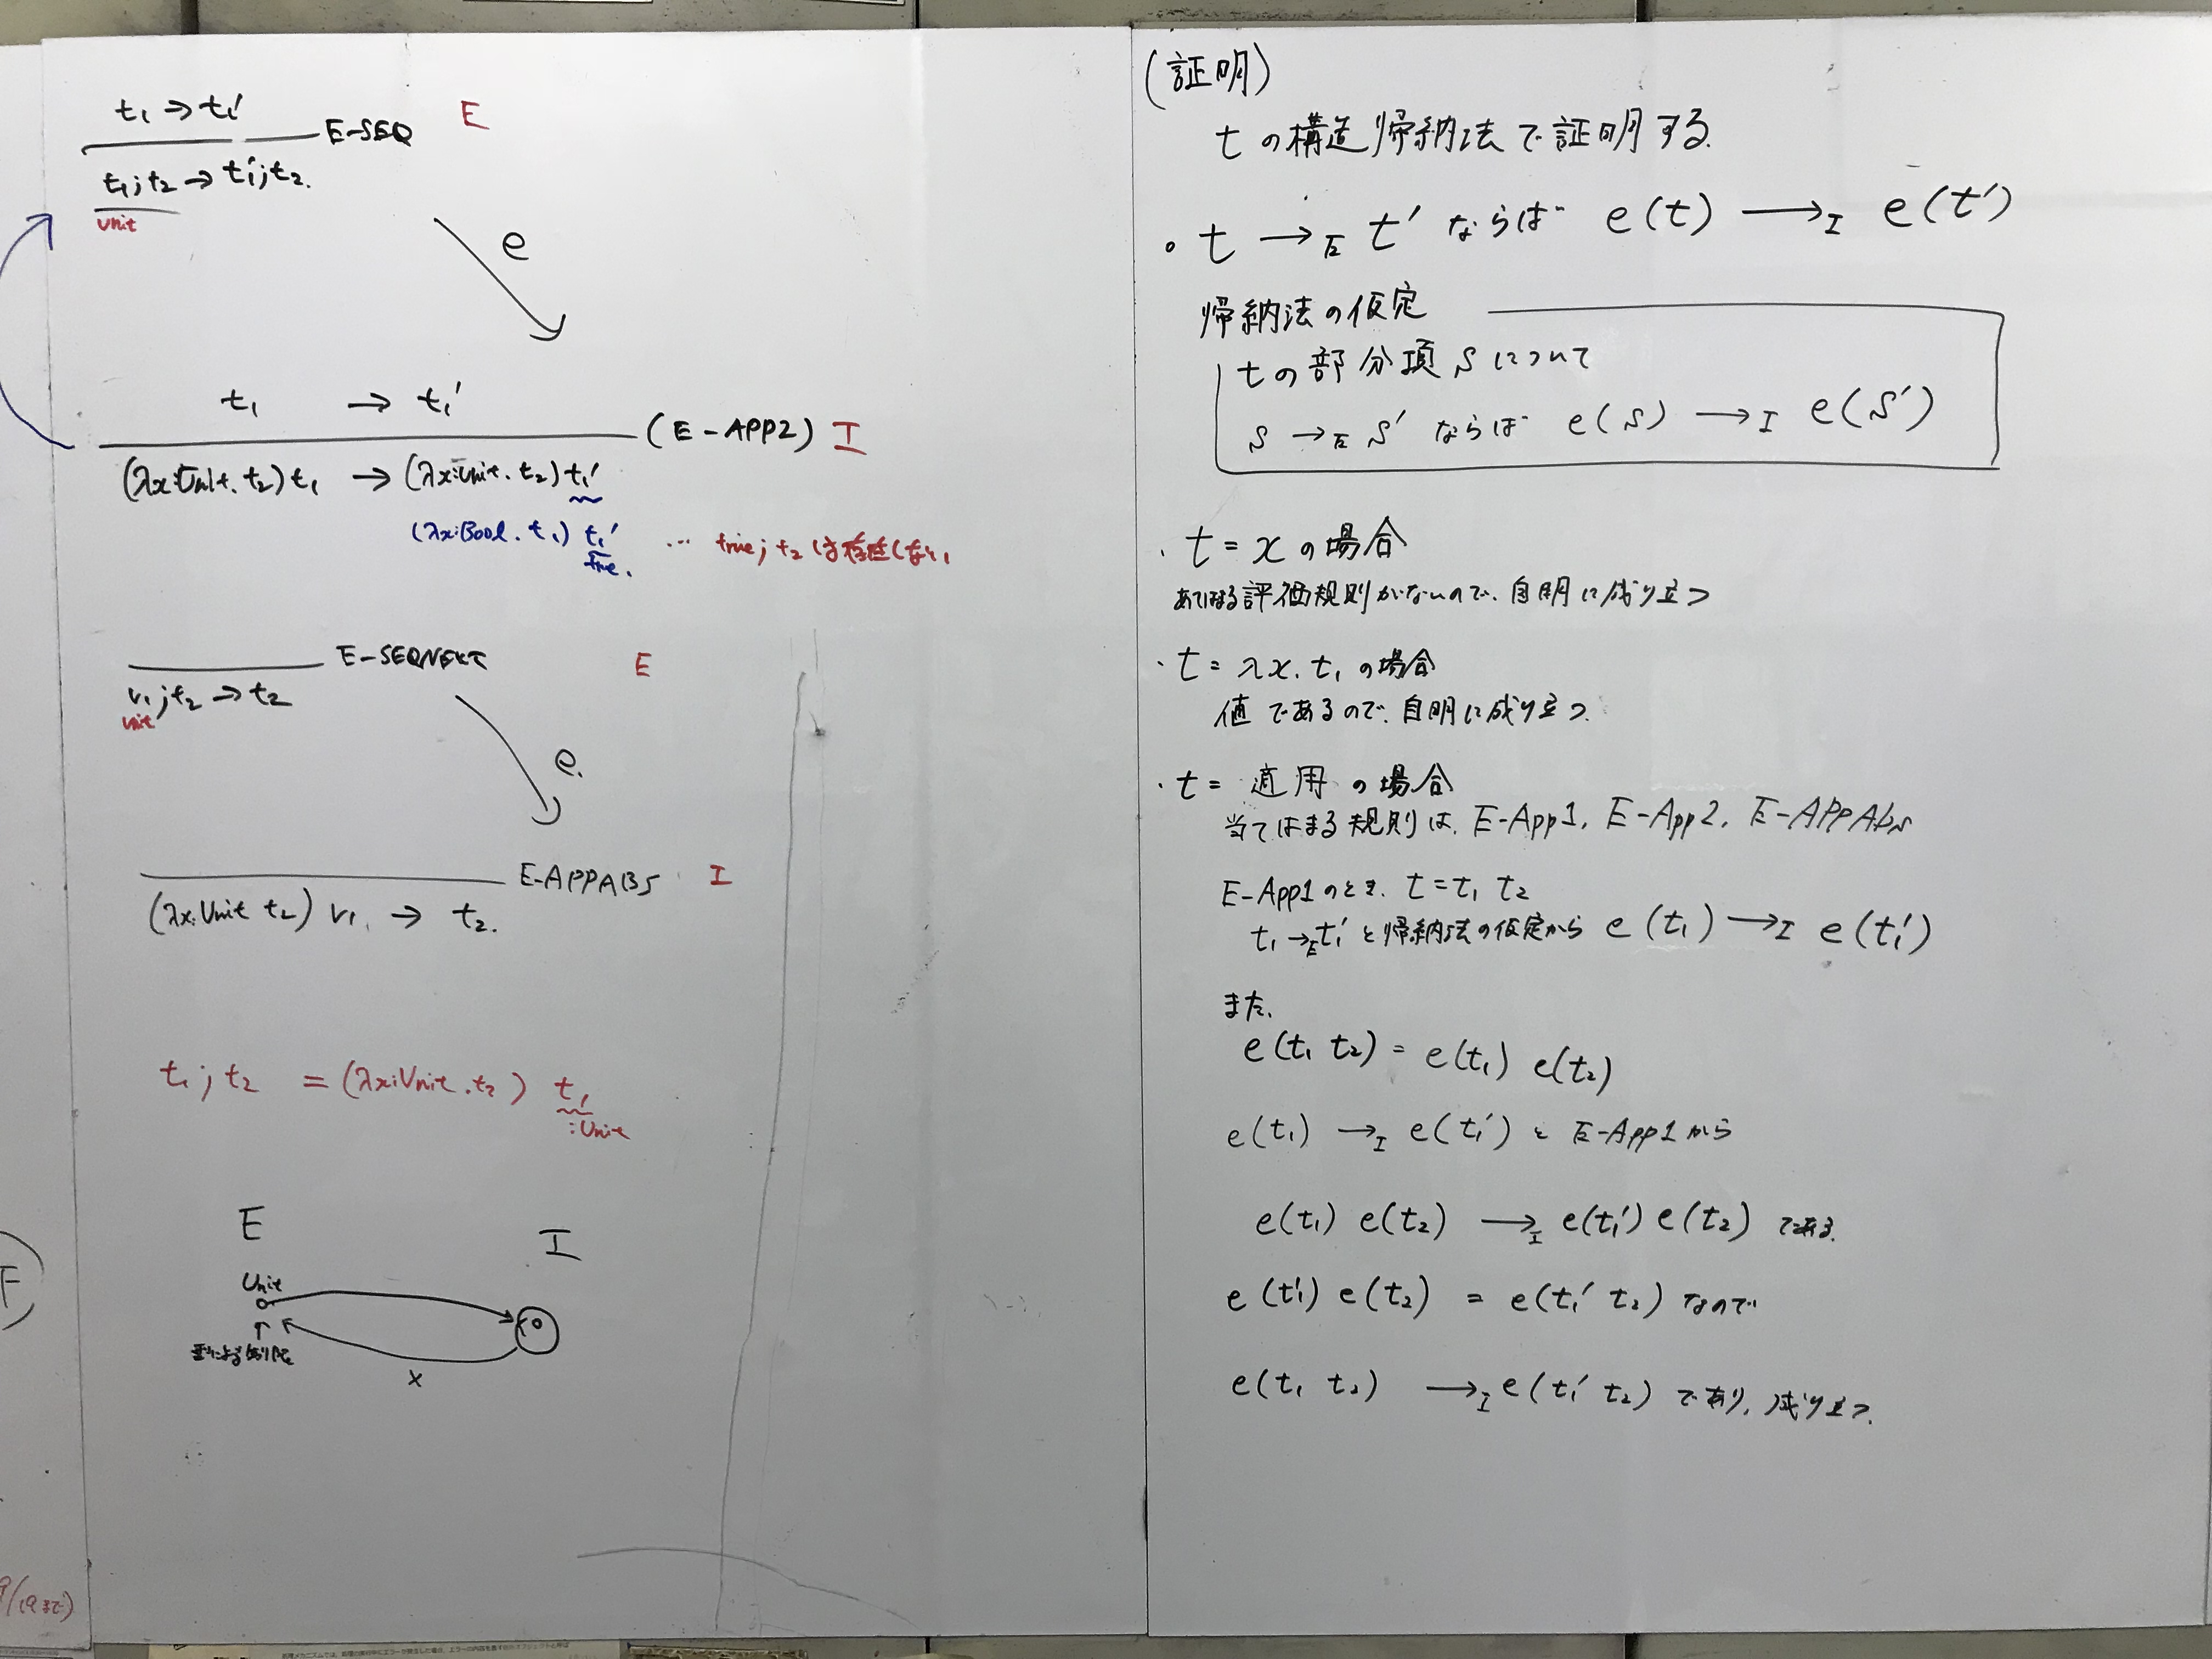 t₁ → t₁′
E-SEQ E
t₁;t₂ → t₁′;t₂.
Unit
e
t₁ → t₁′
(E-APP2) I
(λx:Unit. t₂) t₁ → (λx:Unit. t₂) t₁′
(λx:Bool. t₁) t₁′ … true; t₂ は存在しない
true.
E-SEQNEXT E
v₁;t₂ → t₂
unit
e.
E-APPABS I
(λx:Unit t₂) v₁. → t₂.
t₁;t₂ = (λx:Unit.t₂) t₁
:Unit
E I
Unit
型による
x
F
9/19まで)
(証明)
tの構造帰納法で証明する.
。t →E t′ ならば e(t) →I e(t′)
帰納法の仮定
tの部分項sについて
s →E s′ ならば e(s) →I e(s′)
・t = x の場合
あてはまる評価規則がないので、自明に成り立つ
・t = λx. t₁ の場合
値であるので、自明に成り立つ.
・t = 適用の場合
当てはまる規則は、E-App1, E-App2, E-APPAbs
E-App1のとき. t = t₁ t₂
t₁ →E t₁′ と帰納法の仮定から e(t₁) →I e(t₁′)
また、
e(t₁ t₂) = e(t₁) e(t₂)
e(t₁) →I e(t₁′) と E-App1から
e(t₁) e(t₂) →I e(t₁′) e(t₂) である.
e(t₁′) e(t₂) = e(t₁′ t₂) なので
e(t₁ t₂) →I e(t₁′ t₂) であり、成り立つ.